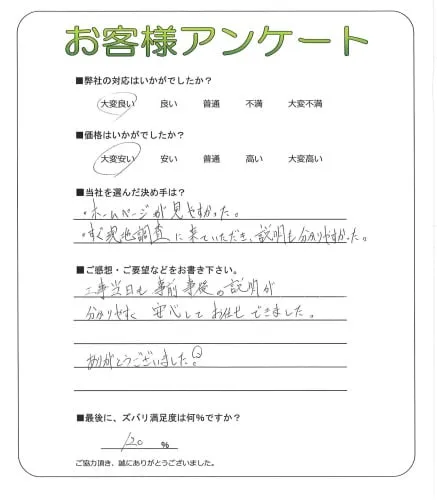 お客様アンケート
■弊社の対応はいかがでしたか？
大変良い 良い 普通 不満 大変不満
■価格はいかがでしたか？
大変安い 安い 普通 高い 大変高い
■当社を選んだ決め手は？
・ホームページが見やすかった。
・すぐ現地調査に来ていただき、説明も分かりやすかった。
■ご感想・ご要望などをお書き下さい。
工事当日も事前事後の説明が
分かりやすく安心してお任せできました。
ありがとうございました。
■最後に、ズバリ満足度は何%ですか？
120 %
ご協力頂き、誠にありがとうございました。